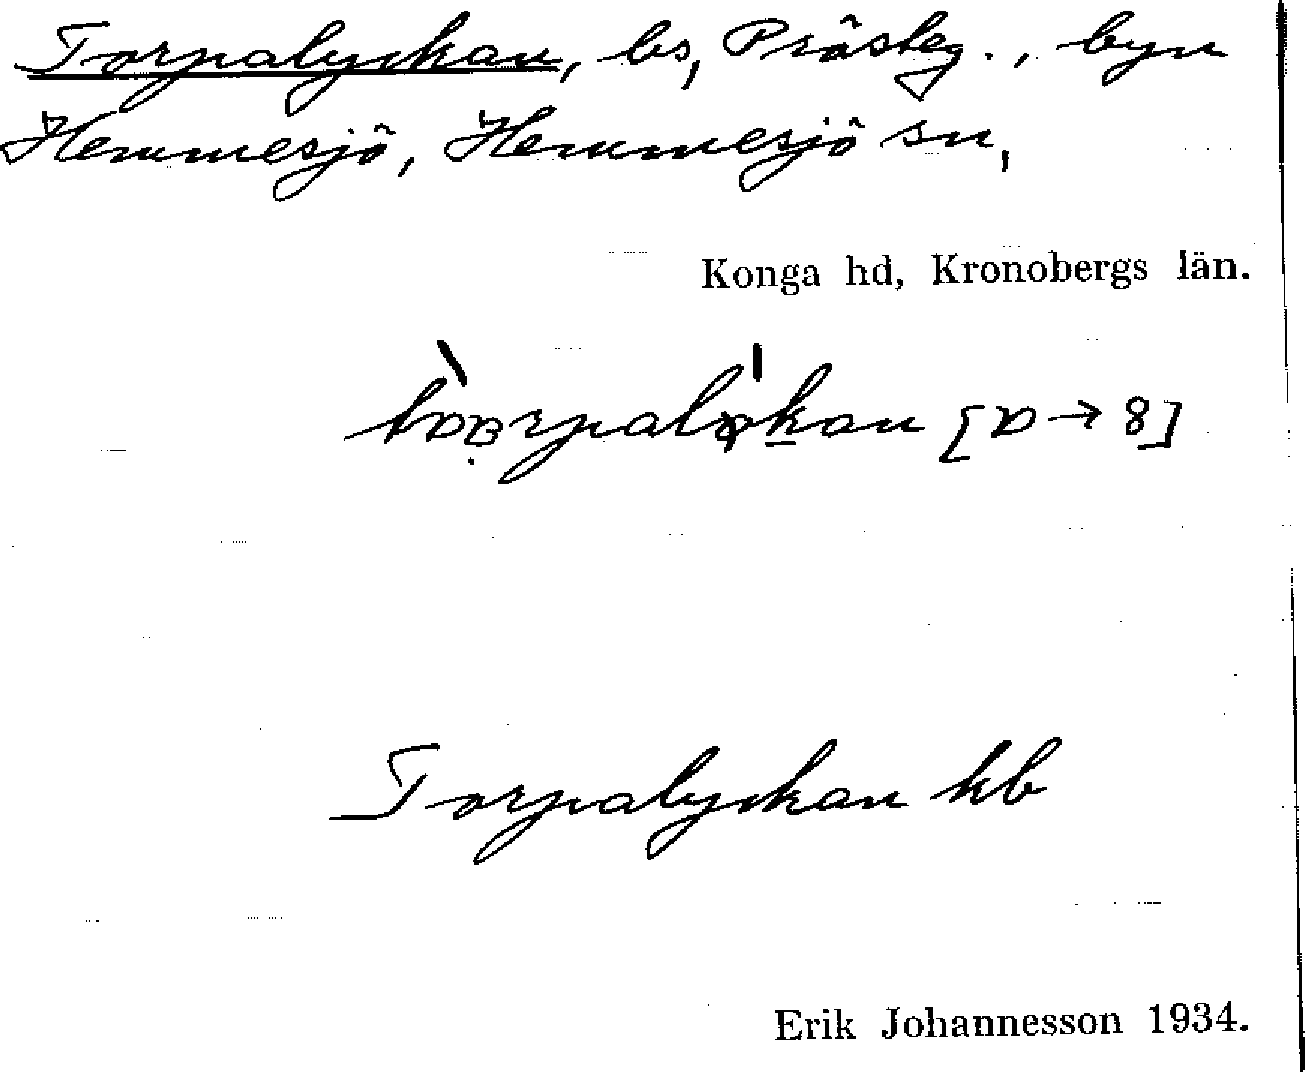 Torpalyckan, ls, Prästeg., byn
Hemmesjö, Hemmesjö sn,
Konga hd, Kronobergs län.
Torpalyckan hb
Erik Johannesson 1934.